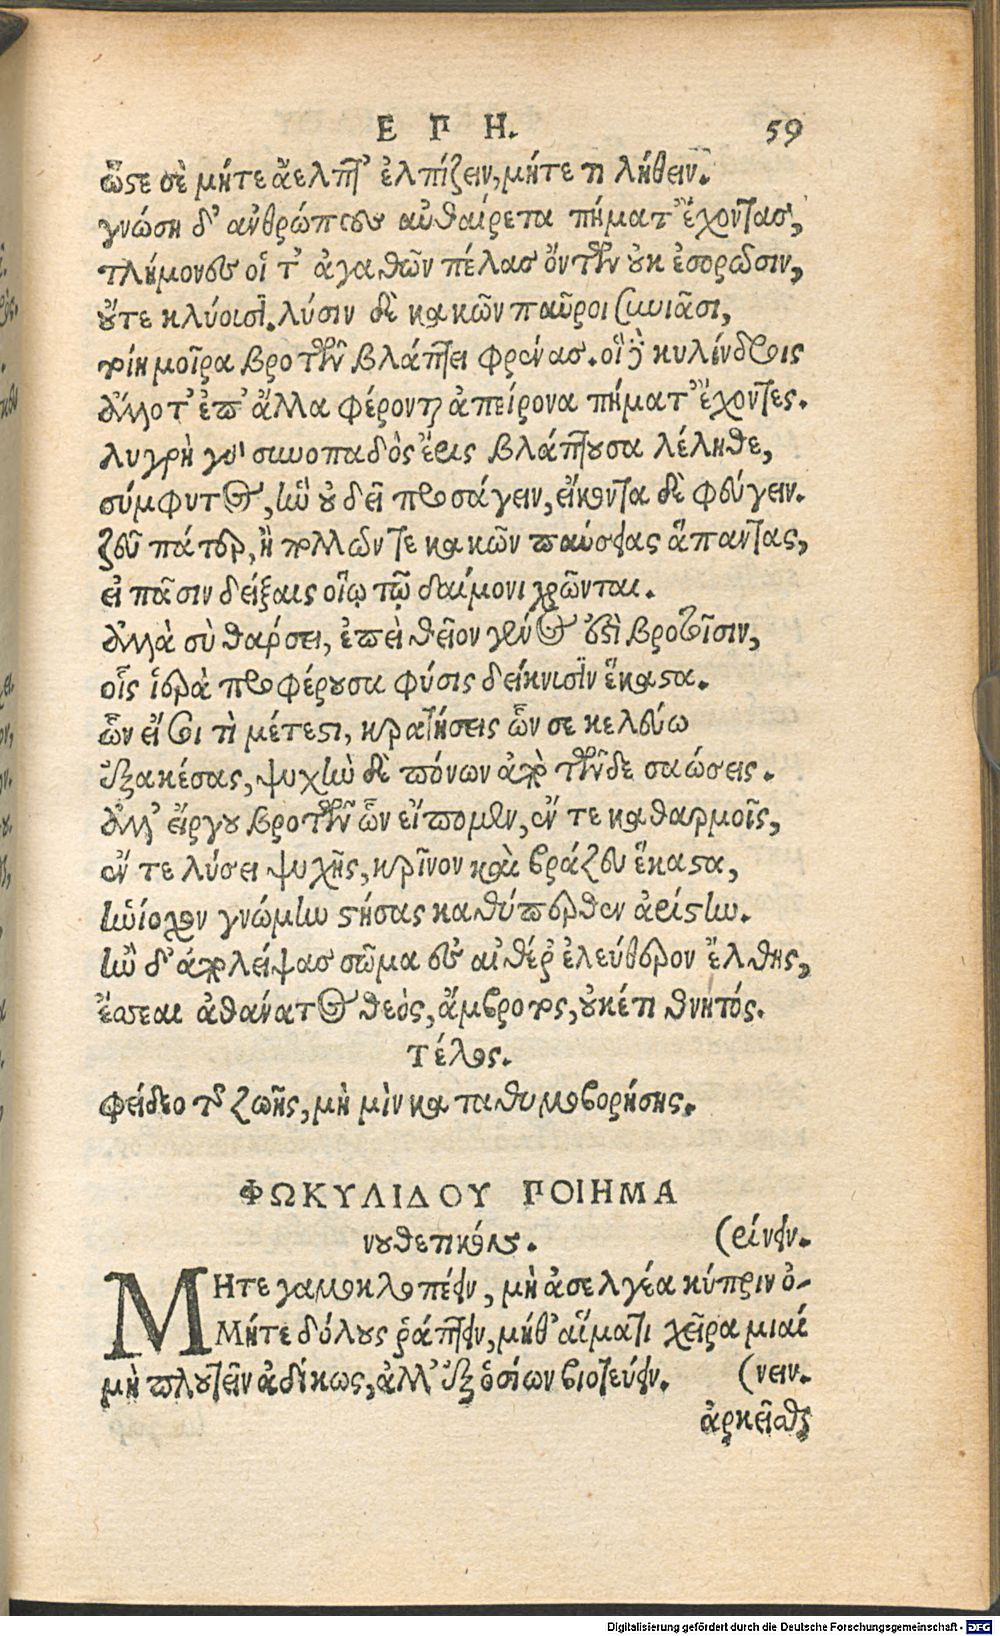 ΕΠΗ. 59
ὥστε σὲ μήτε ἄελπτ' ἐλπίζειν, μήτε τι λήθειν.
γνώσῃ δ' ἀνθρώπους αὐθαίρετα πήματ' ἔχοντας,
τλήμονας οἵ τ' ἀγαθῶν πέλας ὄντων οὐκ ἐσορῶσιν,
οὔτε κλύουσι. λύσιν δὲ κακῶν παῦροι συνιᾶσι,
τοίη μοῖρα βροτῶν βλάπτει φρένας. οἳ δὲ κυλίνδροις
ἄλλοτ' ἐπ' ἄλλα φέρονται ἀπείρονα πήματ' ἔχοντες.
λυγρὴ γὰρ συνοπαδὸς ἔρις βλάπτουσα λέληθε,
σύμφυτος, ἣν οὐ δεῖ προσάγειν, εἴκοντα δὲ φεύγειν.
ζεῦ πάτερ, ἢ πολλῶν τε κακῶν παύσειας ἅπαντας,
εἰ πᾶσιν δείξαις οἵῳ τῷ δαίμονι χρῶνται.
ἀλλὰ σὺ θάρσει, ἐπεὶ θεῖον γένος ἐστὶ βροτοῖσιν,
οἷς ἱερὰ προφέρουσα φύσις δείκνισιν ἕκαστα.
ὧν εἴ σοι τὶ μέτεστι, κρατήσεις ὧν σε κελεύω
ἐξακέσας, ψυχὴν δὲ πόνων ἀπὸ τῶνδε σαώσεις.
ἀλλ' εἴργου βροτῶν ὧν εἴπομεν, ἔν τε καθαρμοῖς,
ἔν τε λύσει ψυχῆς, κρῖνον καὶ φράζευ ἕκαστα,
ἡνίοχον γνώμην στήσας καθύπερθεν ἀρίστην.
ἢν δ' ἀπολείψας σῶμα ἐς αἰθέρ' ἐλεύθερον ἔλθῃς,
ἔσσεαι ἀθάνατος θεὸς, ἄμβροτος, οὐκέτι θνητός.
Τέλος.
φείδεο τῆς ζωῆς, μὴ μὶν καταθυμοβορήσῃς.
ΦΩΚΥΛΙΔΟΥ ΠΟΙΗΜΑ
νουθετικόν. (ρίνειν.
ΜΗτε γαμοκλοπέειν, μὴ ἀσελγέα κύπριν ὀ-
Μήτε δόλους ῥάπτειν, μήθ' αἵματι χεῖρα μιαί
μὴ πλουτεῖν ἀδίκως, ἀλλ' ἐξ ὁσίων βιοτεύειν. (νειν.
ἀρκεῖσθαι
Digitalisierung gefördert durch die Deutsche Forschungsgemeinschaft - DFG